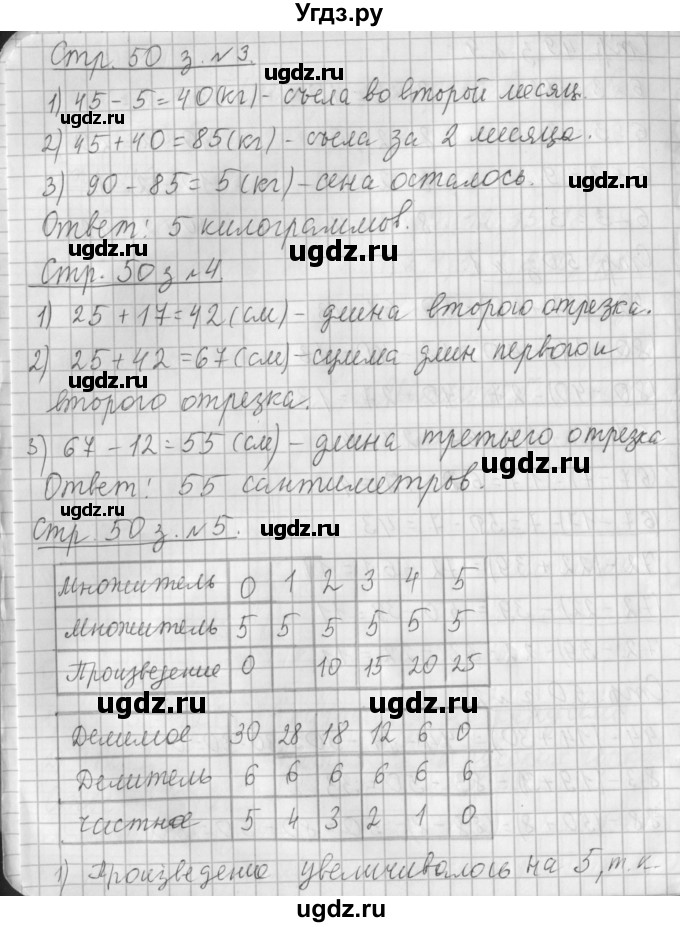 Угдз.ру
Стр. 50 з. №3.
ugdz.ru
1) 45 - 5 = 40 (кг) - съела во второй месяц.
ugdz.ru ugdz.ru
2) 45 + 40 = 85 (кг) - съела за 2 месяца.
3) 90 - 85 = 5 (кг) - сена осталось.
ugdz.ru
Ответ: 5 килограммов.
ugdz.ru ugdz.ru
Стр. 50 з №4.
ugdz.ru
1) 25 + 17 = 42 (см) - длина второго отрезка.
ugdz.ru
2) 25 + 42 = 67 (см) - сумма длин первого и
ugdz.ru
второго отрезка.
ugdz.ru
3) 67 - 12 = 55 (см) - длина третьего отрезка
ugdz.ru
Ответ: 55 сантиметров.
ugdz.ru
Стр. 50 з. №5.
ugdz.ru
Множитель 0 1 2 3 4 5
ugdz.ru
Множитель 5 5 5 5 5 5
Произведение 0 10 15 20 25
ugdz.ru ugdz.ru
Делимое 30 28 18 12 6 0
Делитель 6 6 6 6 6 6
ugdz.ru
Частное 5 4 3 2 1 0
ugdz.ru
1) Произведение увеличивалось на 5, т.к.
ugdz.ru